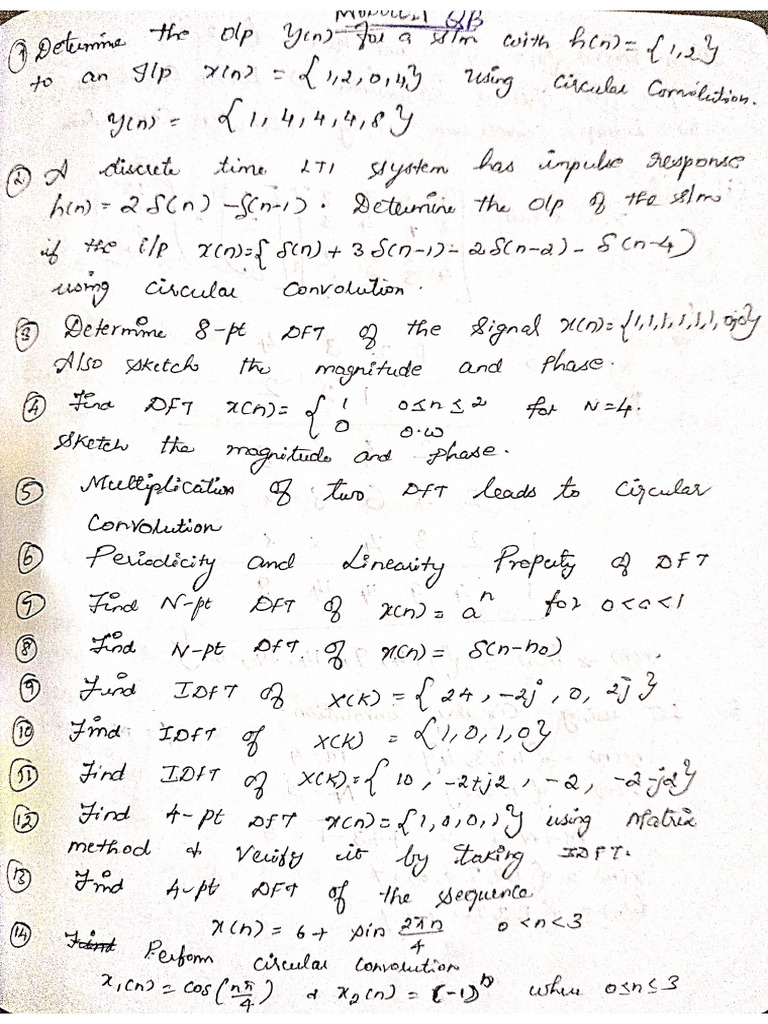 MODULE-1 QB
① Determine the o/p y(n) for a s/m with h(n) = {1,2}
to an I/p x(n) = {1,2,0,4} using circular Convolution.
y(n) = {1,4,4,4,8}
② A discrete time LTI system has impulse response
h(n) = 2δ(n) - δ(n-1). Determine the o/p of the s/m
if the i/p x(n)={δ(n) + 3δ(n-1) - 2δ(n-2) - δ(n-4)
using circular convolution.
③ Determine 8-pt DFT of the signal x(n)={1,1,1,1,1,1,0,0}
Also sketch the magnitude and phase.
④ Find DFT x(n) = { 1 0≤n≤2 for N=4.
0 o.w
Sketch the magnitude and phase.
⑤ Multiplication of two DFT leads to circular
convolution
⑥ Periodicity and Linearity Property of DFT
⑦ Find N-pt DFT of x(n) = aⁿ for 0<a<1
⑧ Find N-pt DFT of x(n) = δ(n-n0)
⑨ Find IDFT of X(K) = {24, -2j, 0, 2j}
⑩ Find IDFT of X(K) = {1,0,1,0}
⑪ Find IDFT of X(K)={10, -2+j2, -2, -2-j2}
⑫ Find 4-pt DFT x(n) = {1,0,0,1} using Matrix
method & verify it by taking IDFT.
⑬ Find 4-pt DFT of the sequence
x(n) = 6 + sin 2πn/4 0<n<3
⑭ Perform circular convolution
x₁(n) = cos(nπ/4) & x₂(n) = (-1)ⁿ when 0≤n≤3